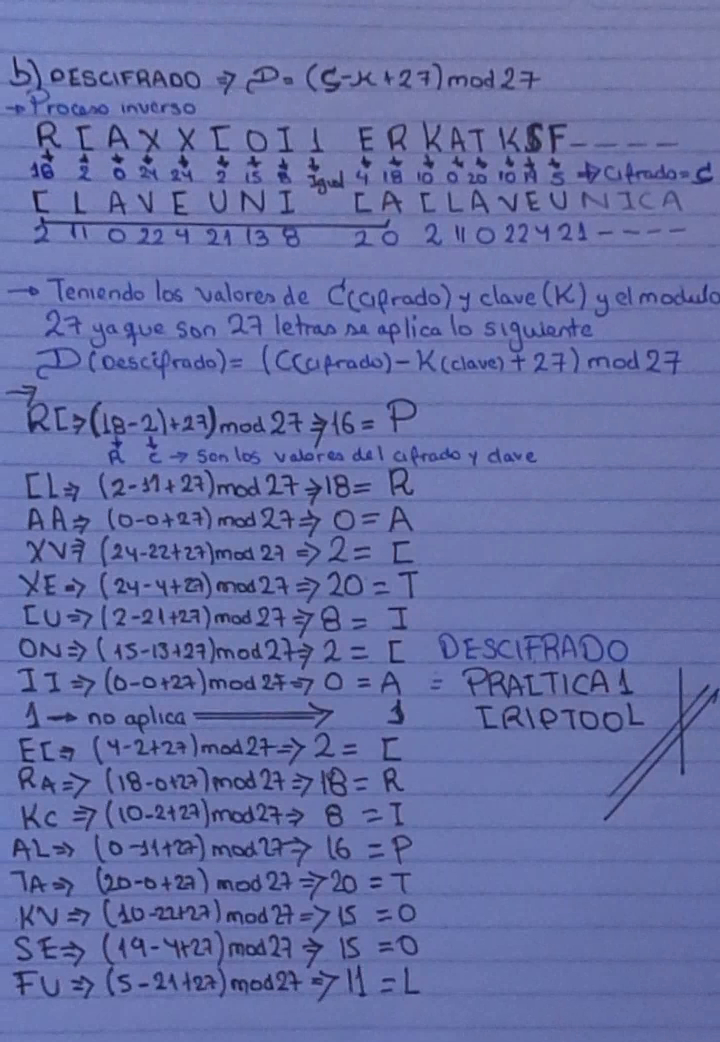 b) DESCIFRADO => D = (C-K+27) mod 27
→ Proceso inverso
R C A X X C O I 1 E R K A T K S F - - - -
18 2 0 24 24 2 15 8 Igual 4 18 10 0 20 10 19 5 => Cifrado = C
C L A V E U N I C A C L A V E U N I C A
2 11 0 22 4 21 13 8 2 0 2 11 0 22 4 21 - - - -
→ Teniendo los valores de C(cifrado) y clave (K) y el modulo
27 ya que son 27 letras se aplica lo siguiente
D (Descifrado) = (C(cifrado) - K(clave) + 27) mod 27
→
RC => (18-2)+27) mod 27 => 16 = P
R C → son los valores del cifrado y clave
CL => (2-11+27) mod 27 => 18 = R
AA => (0-0+27) mod 27 => 0 = A
XV => (24-22+27) mod 27 => 2 = C
XE => (24-4+27) mod 27 => 20 = T
CU => (2-21+27) mod 27 => 8 = I
ON => (15-13+27) mod 27 => 2 = C DESCIFRADO
II => (0-0+27) mod 27 => 0 = A = PRACTICA 1
1 → no aplica => 1 CRIPTOOL
EC => (4-2+27) mod 27 => 2 = C
RA => (18-0+27) mod 27 => 18 = R
KC => (10-2+27) mod 27 => 8 = I
AL => (0-11+27) mod 27 => 16 = P
TA => (20-0+27) mod 27 => 20 = T
KV => (10-22+27) mod 27 => 15 = O
SE => (19-4+27) mod 27 => 15 = O
FU => (5-21+27) mod 27 => 11 = L